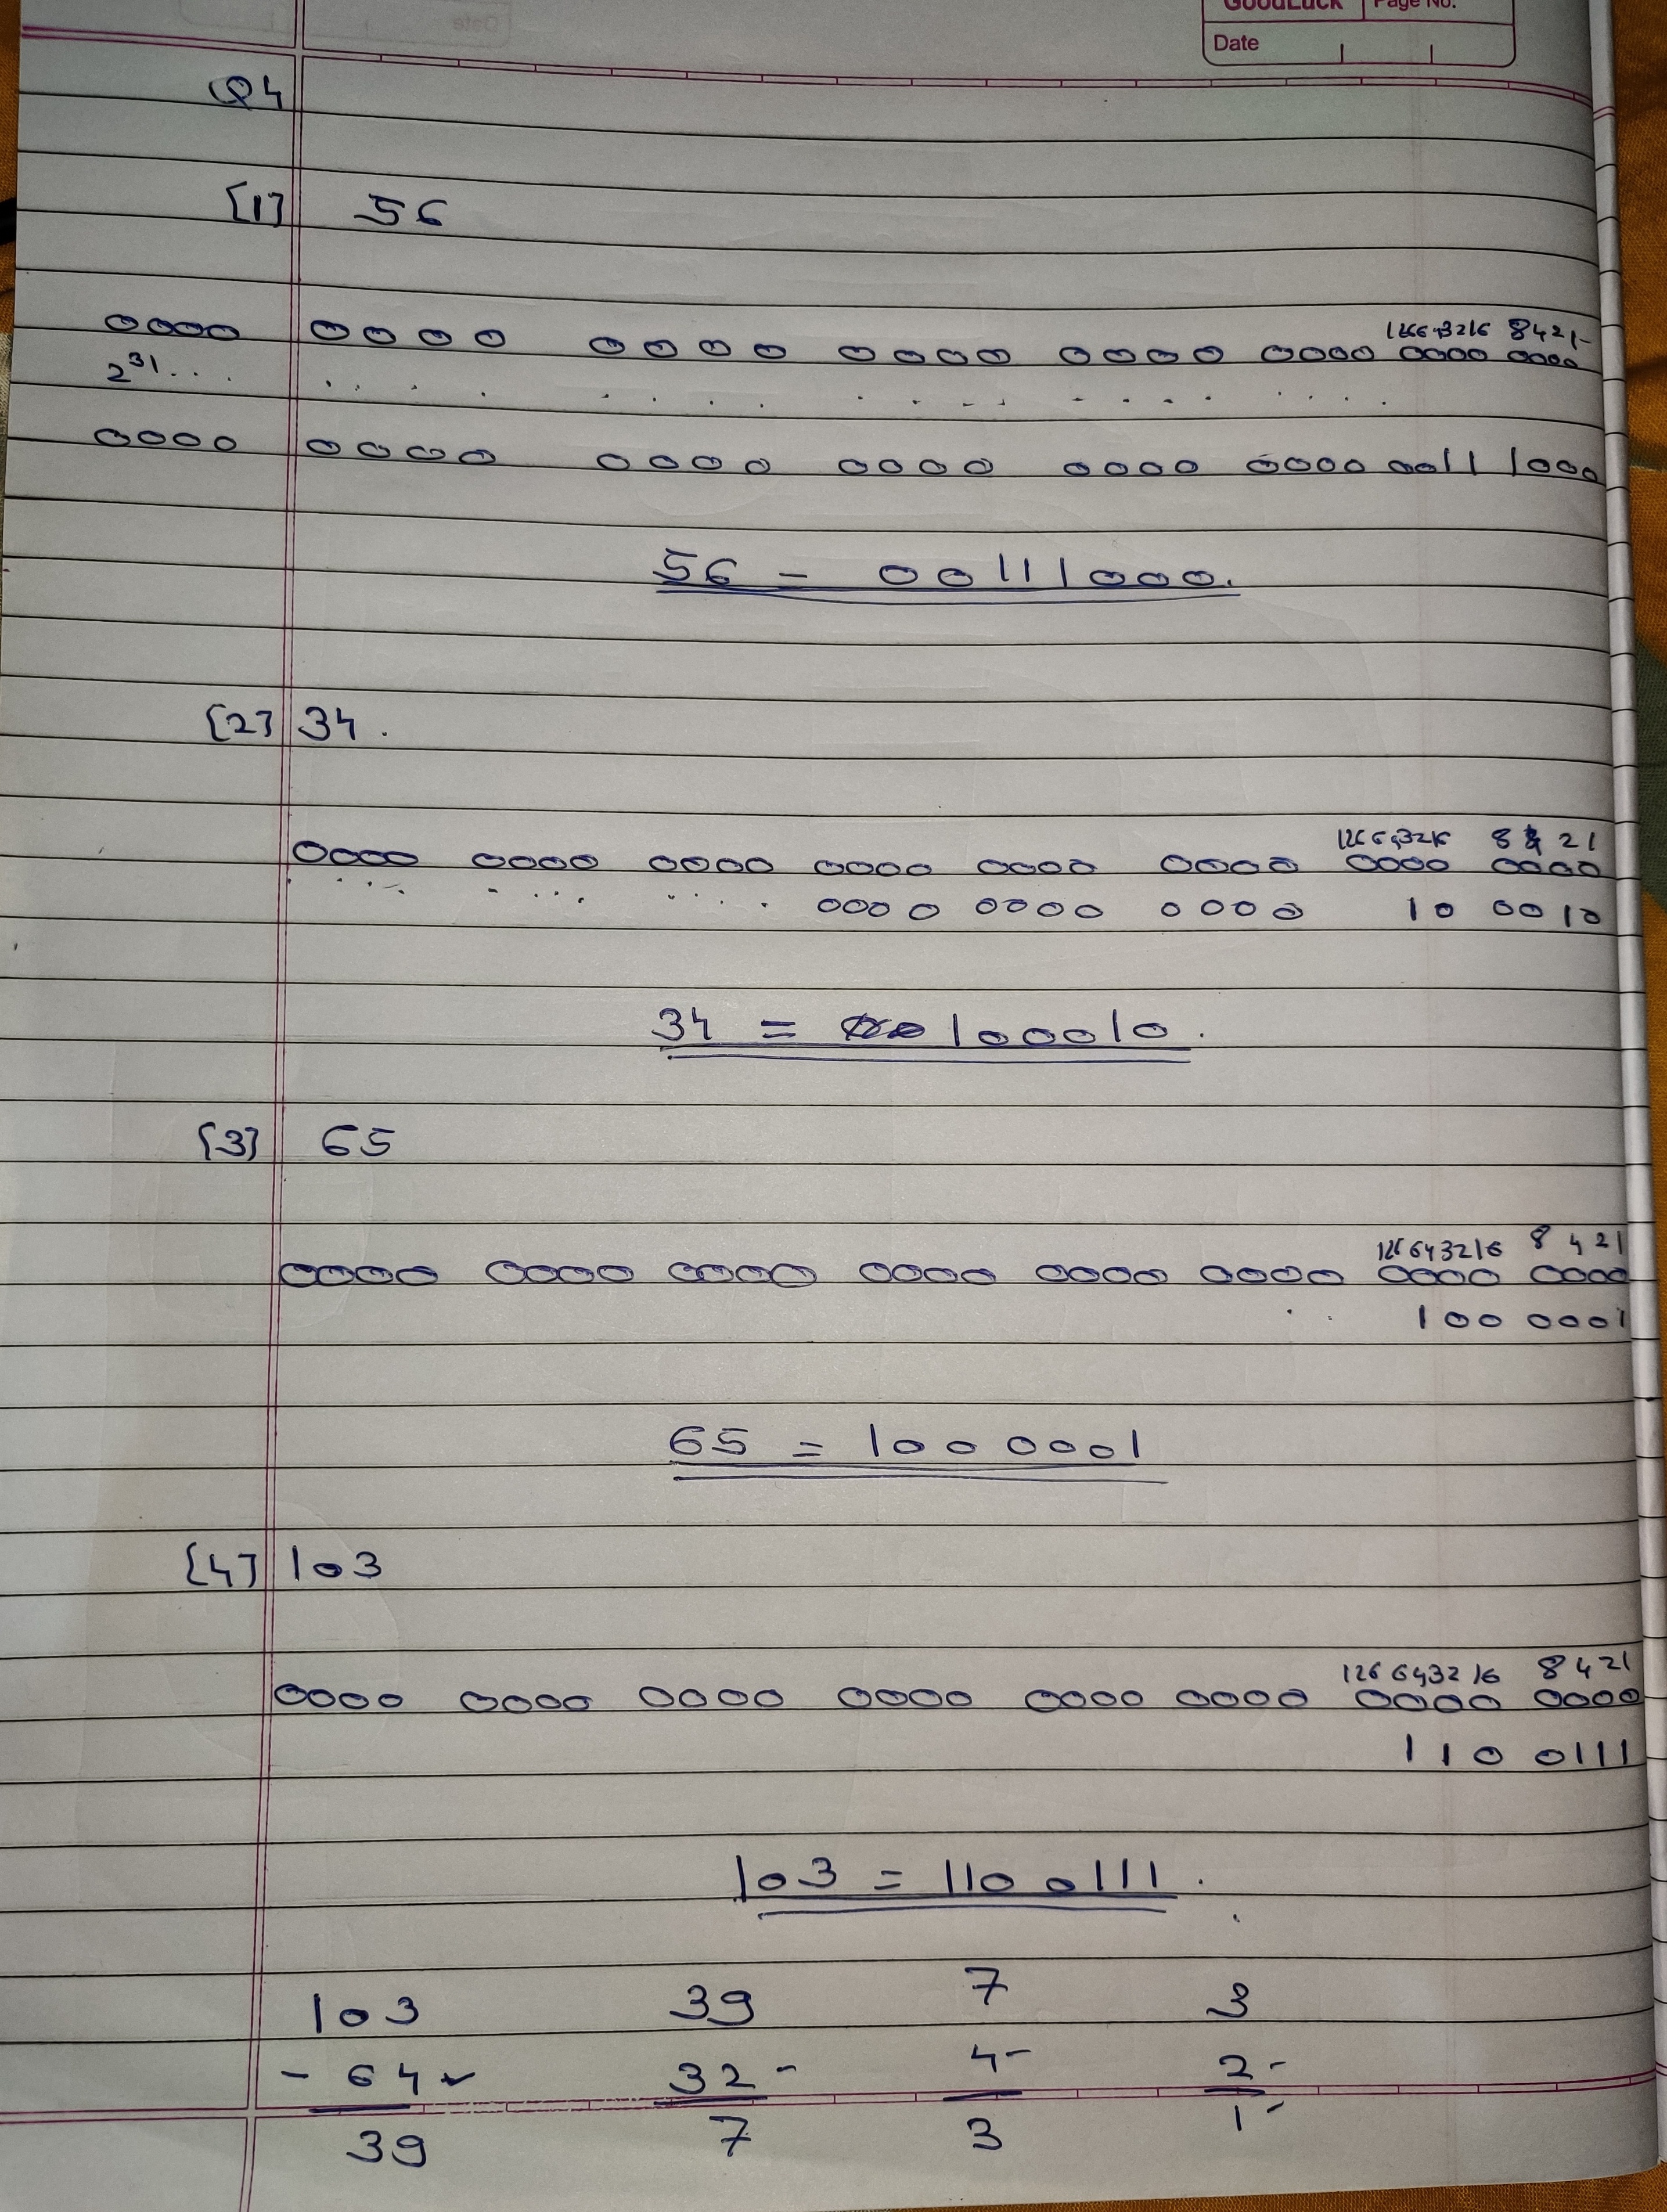 GoodLuck Page No.
Date
Q4
[1] 56
1266432168421
0000 0000 0000 0000 0000 0000 0000 0000
2^31 . . .
0000 0000 0000 0000 0000 0000 0011 1000
56 - 00111000.
[2] 34.
126643216 8421
0000 0000 0000 0000 0000 0000 0000 0000
0000 0000 0000 10 0010
34 = 100010.
[3] 65
126643216 8421
0000 0000 0000 0000 0000 0000 0000 0000
100 0001
65 = 100 0001
[4] 103
126 643216 8421
0000 0000 0000 0000 0000 0000 0000 0000
110 0111
103 = 110 0111.
103 39 7 3
- 64 32 - 4 - 2 -
39 7 3 1